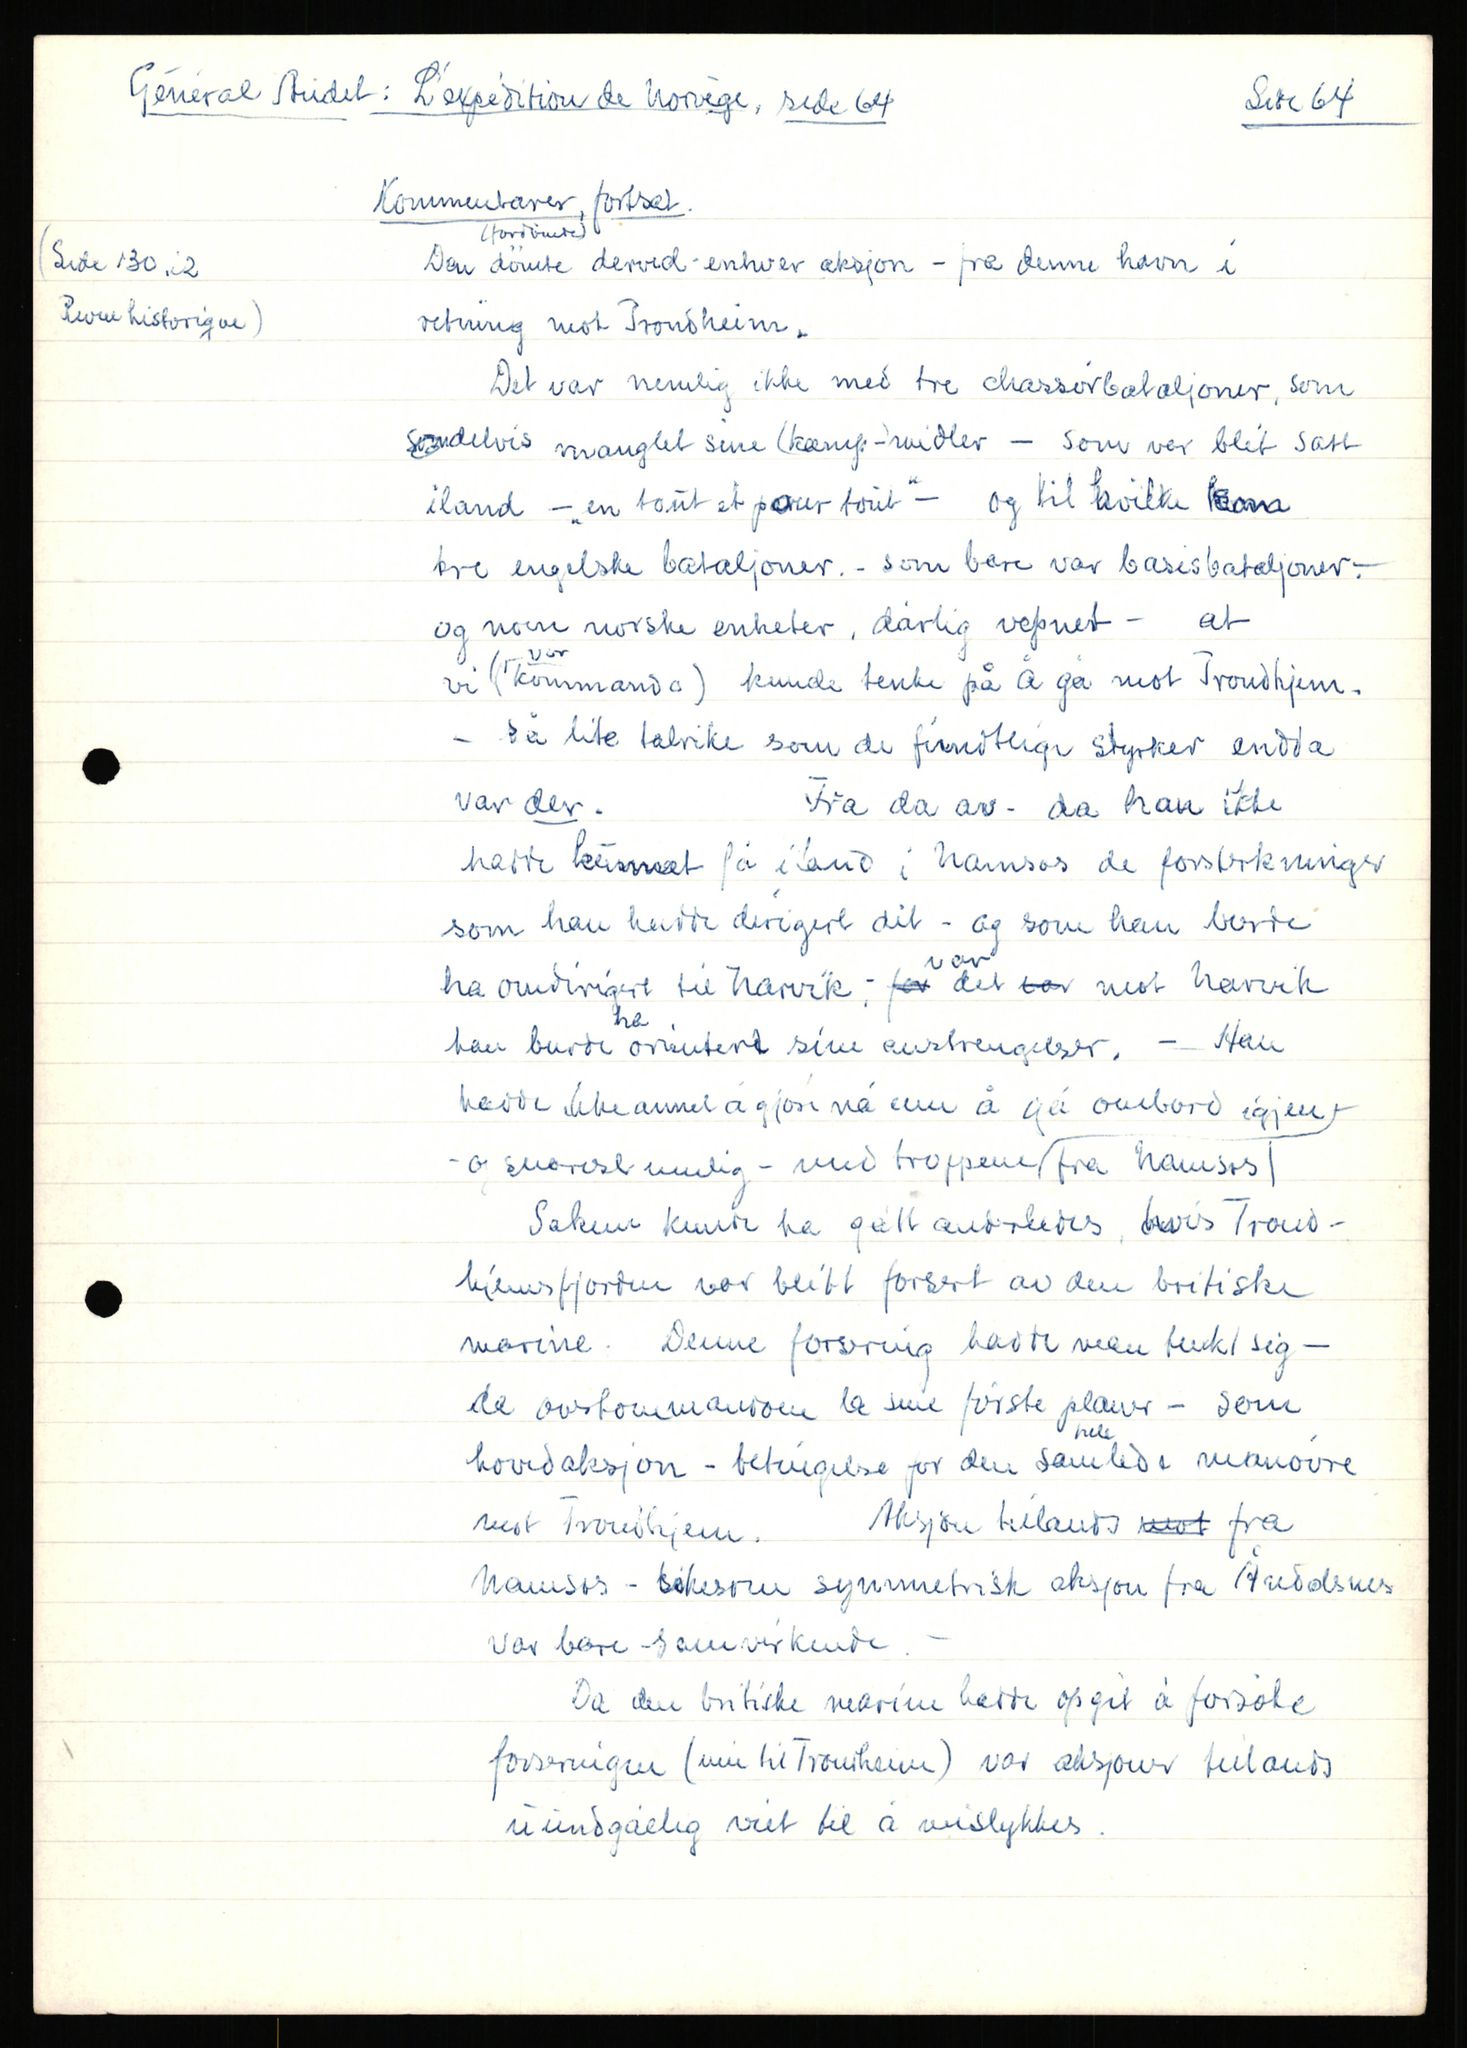 Général Audet: L'expédition de Norvège, side 64
Side 64
Kommentarer, fortsat.
(Side 130 i 2
Revue historique)
(fordömte)
Den dömte derved - enhver aksjon - fra denne havn i
retning mot Trondheim.
Det var nemlig ikke med tre chassörbataljoner, som
somdelvis manglet sine (kamp-)midler - som var blit satt
iland - "en tout et pour tout" - og til hvilke kom
tre engelske bataljoner. - som bare var basisbataljoner. -
og noen norske enheter, dårlig vepnet - at
vi (vår kommando) kunde tenke på å gå mot Trondhjem.
- så lite talrike som de fiendtlige styrker endda
var der. Fra da av - da han ikke
hadde kunnet få iland i Namsos de forsterkninger
som han hadde dirigert dit - og som han burde
ha omdirigert til Narvik; - for var det var mot Narvik
han burde ha orientert sine anstrengelser. - Han
hadde ikke annet å gjöre nå enn å gå ombord igjen -
- og snarest mulig - med troppene (fra Namsos)
Saken kunde ha gått anderledes, hvis Trond-
hjemsfjorden var blitt forsert av den britiske
marine. Denne forsering hadde man tenkt sig -
da overkommandoen la sine förste planer - som
hovedaksjon - betingelse for den hele samlede manövre
mot Trondhjem. Aksjon tillands mot fra
Namsos - likesom symmetrisk aksjon fra Åndalsnes
var bare - samvirkende. -
Da den britiske marine hadde opgit å forsöke
forseringen (inn til Trondheim) var aksjoner tillands
uundgåelig viet til å mislykkes.